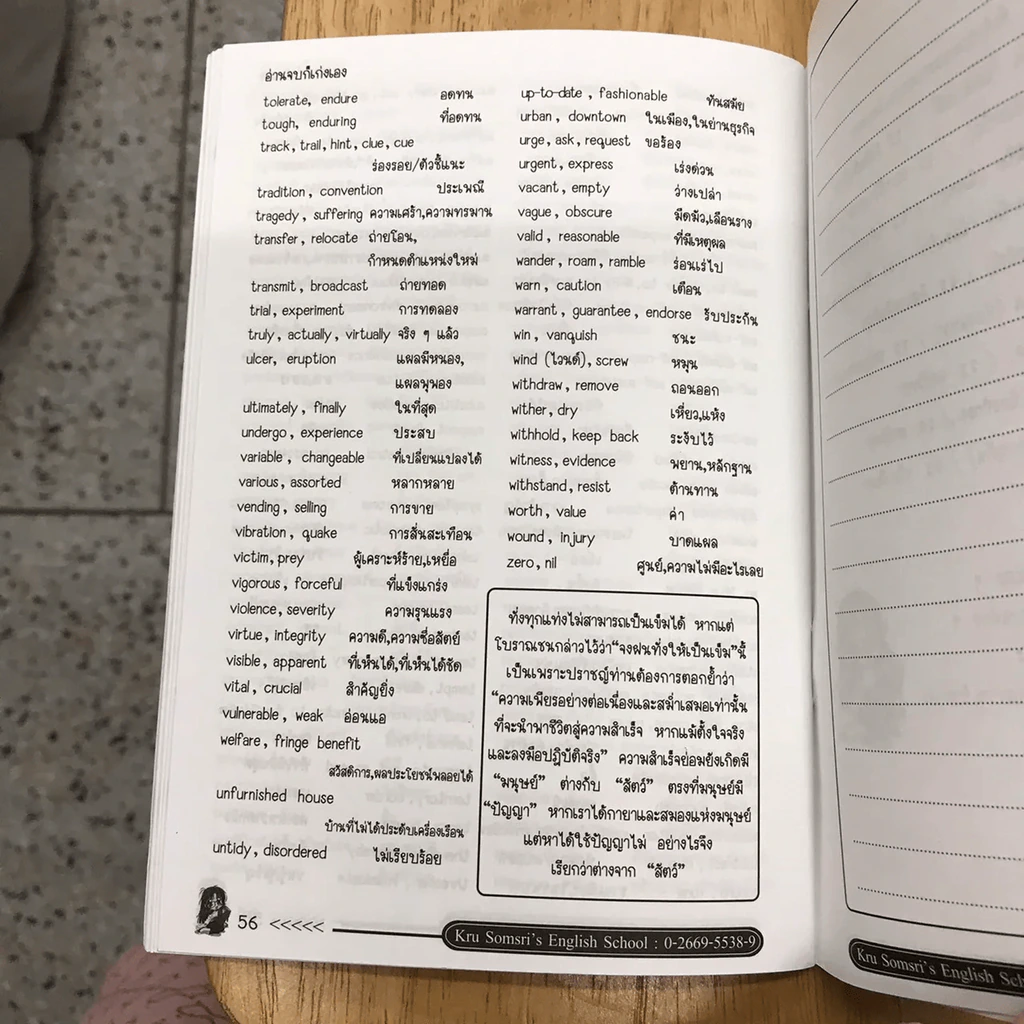 อ่านจบก็เก่งเอง
tolerate, endure อดทน
tough, enduring ที่อดทน
track, trail, hint, clue, cue
ร่องรอย/ตัวชี้แนะ
tradition, convention ประเพณี
tragedy, suffering ความเศร้า,ความทรมาน
transfer, relocate ถ่ายโอน,
กำหนดตำแหน่งใหม่
transmit, broadcast ถ่ายทอด
trial, experiment การทดลอง
truly, actually, virtually จริง ๆ แล้ว
ulcer, eruption แผลมีหนอง,
แผลพุพอง
ultimately, finally ในที่สุด
undergo, experience ประสบ
variable, changeable ที่เปลี่ยนแปลงได้
various, assorted หลากหลาย
vending, selling การขาย
vibration, quake การสั่นสะเทือน
victim, prey ผู้เคราะห์ร้าย,เหยื่อ
vigorous, forceful ที่แข็งแกร่ง
violence, severity ความรุนแรง
virtue, integrity ความดี,ความซื่อสัตย์
visible, apparent ที่เห็นได้,ที่เห็นได้ชัด
vital, crucial สำคัญยิ่ง
vulnerable, weak อ่อนแอ
welfare, fringe benefit
สวัสดิการ,ผลประโยชน์พลอยได้
unfurnished house
บ้านที่ไม่ได้ประดับเครื่องเรือน
untidy, disordered ไม่เรียบร้อย
up-to-date, fashionable ทันสมัย
urban, downtown ในเมือง,ในย่านธุรกิจ
urge, ask, request ขอร้อง
urgent, express เร่งด่วน
vacant, empty ว่างเปล่า
vague, obscure มืดมัว,เลือนราง
valid, reasonable ที่มีเหตุผล
wander, roam, ramble ร่อนเร่ไป
warn, caution เตือน
warrant, guarantee, endorse รับประกัน
win, vanquish ชนะ
wind (ไวนด์), screw หมุน
withdraw, remove ถอนออก
wither, dry เหี่ยว,แห้ง
withhold, keep back ระงับไว้
witness, evidence พยาน,หลักฐาน
withstand, resist ต้านทาน
worth, value ค่า
wound, injury บาดแผล
zero, nil ศูนย์,ความไม่มีอะไรเลย
ทั่งทุกแท่งไม่สามารถเป็นเข็มได้ หากแต่
โบราณชนกล่าวไว้ว่า"จงฝนทั่งให้เป็นเข็ม"นี้
เป็นเพราะปราชญ์ท่านต้องการตอกย้ำว่า
"ความเพียรอย่างต่อเนื่องและสม่ำเสมอเท่านั้น
ที่จะนำพาชีวิตสู่ความสำเร็จ หากแม้ตั้งใจจริง
และลงมือปฏิบัติจริง" ความสำเร็จย่อมยังเกิดมี
"มนุษย์" ต่างกับ "สัตว์" ตรงที่มนุษย์มี
"ปัญญา" หากเราได้กายาและสมองแห่งมนุษย์
แต่หาได้ใช้ปัญญาไม่ อย่างไรจึง
เรียกว่าต่างจาก "สัตว์"
56 <<<<<
Kru Somsri's English School : 0-2669-5538-9
Kru Somsri's English